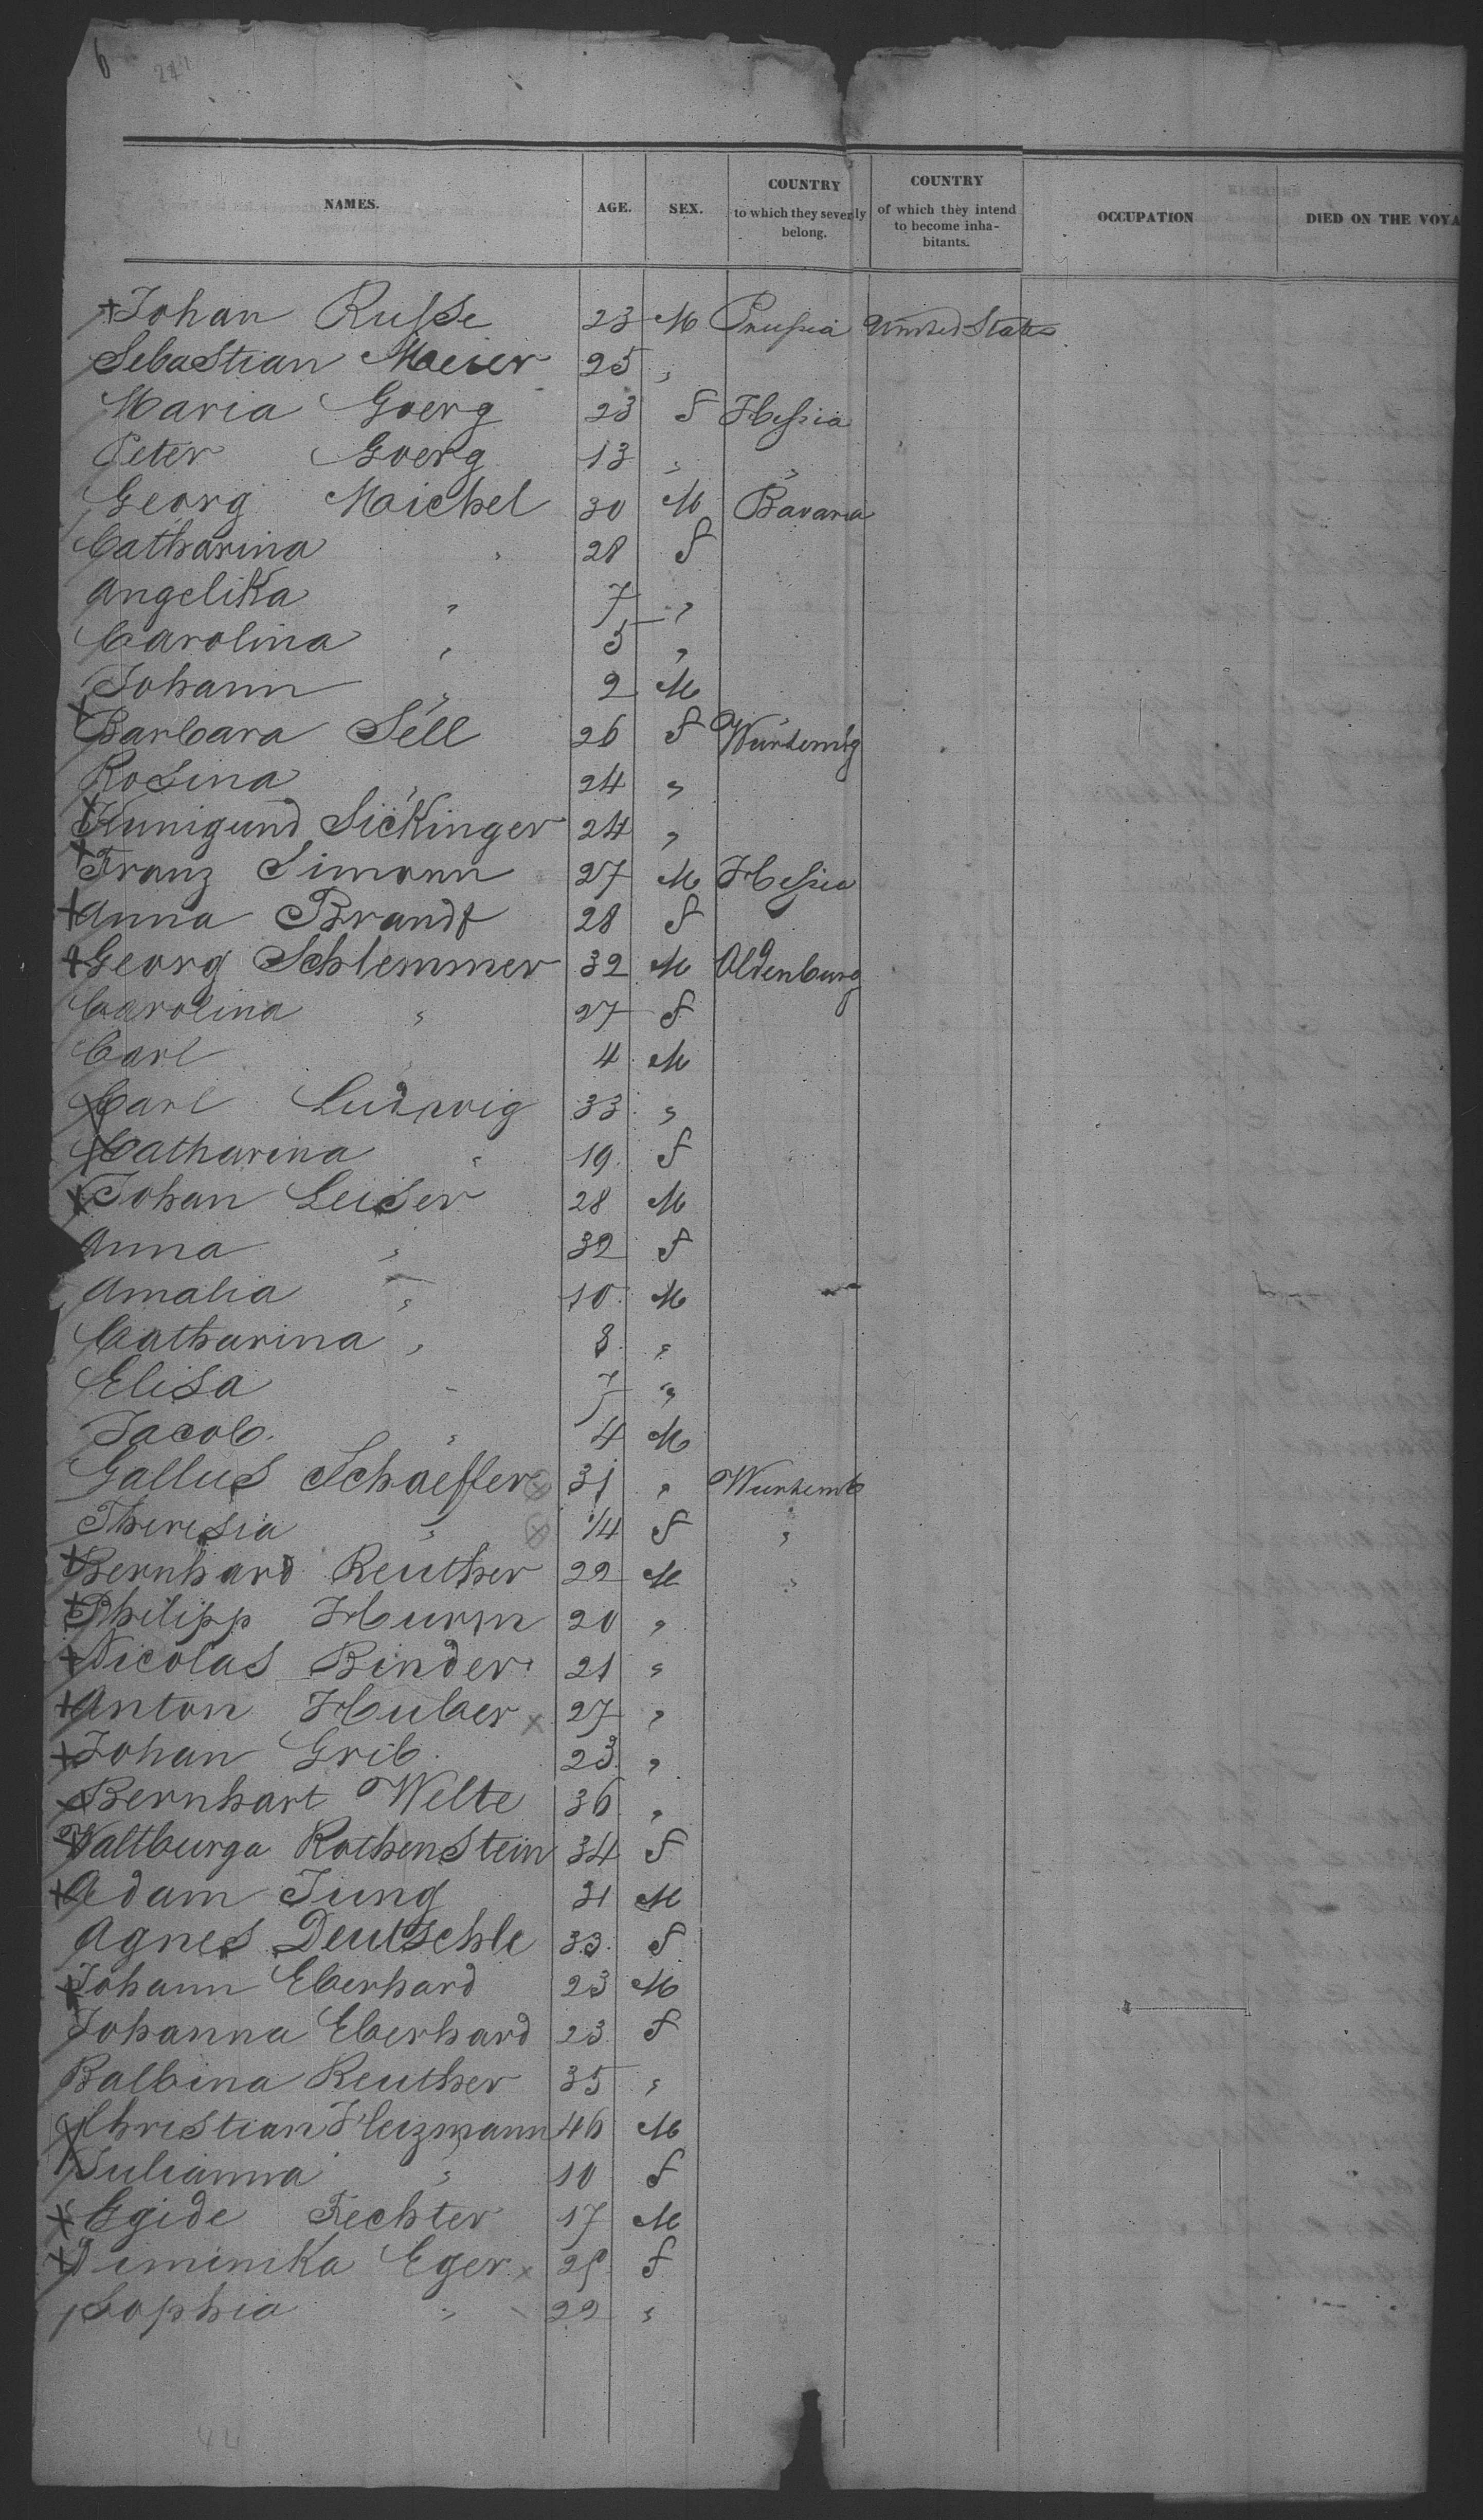 6 271
NAMES. AGE. SEX. COUNTRY to which they severly belong. COUNTRY of which they intend to become inhabitants. OCCUPATION DIED ON THE VOYA
Johan Russe 23 M Prussia United States
Sebastian Meier 25 "
Maria Goerg 23 F Hessia
Peter Goerg 13 " "
Georg Maichel 30 M Bavaria
Catharina " 28 F
Angelika " 7 "
Carolina " 5 "
Johann " 2 M
Barbara Sell 26 F Würtembg
Rosina " 24 "
Kunigund Sickinger 24 "
Franz Simonn 27 M Hessia
Anna Brandt 28 F
Georg Schlemmer 32 M Oldenburg
Carolina " 27 F
Carl " 4 M
Carl Ludwig 33 "
Catharina " 19 F
Johan Leiser 28 M
Anna " 32 F
Amalia " 10 M
Catharina " 8 "
Elisa " 7 "
Jacob " 4 M
Gallus Schaeffer 31 " Wurtemb
Theresia " 1/4 F "
Bernhard Reuther 22 M "
Philipp Hurm 20 "
Nicolas Binder 21 "
Anton Huber 27 "
Johan Grib 23 "
Bernhart Welte 36 "
Waltburga Rothenstein 34 F
Adam Jung 31 M
Agnes Deutschle 33 F
Johann Eberhard 23 M
Johanna Eberhard 23 F
Balbina Reuther 35 "
Christian Heizmann 46 M
Julianna " 10 F
Egide Fechter 17 M
Diminika Eger F
Sophia " 22 "
44